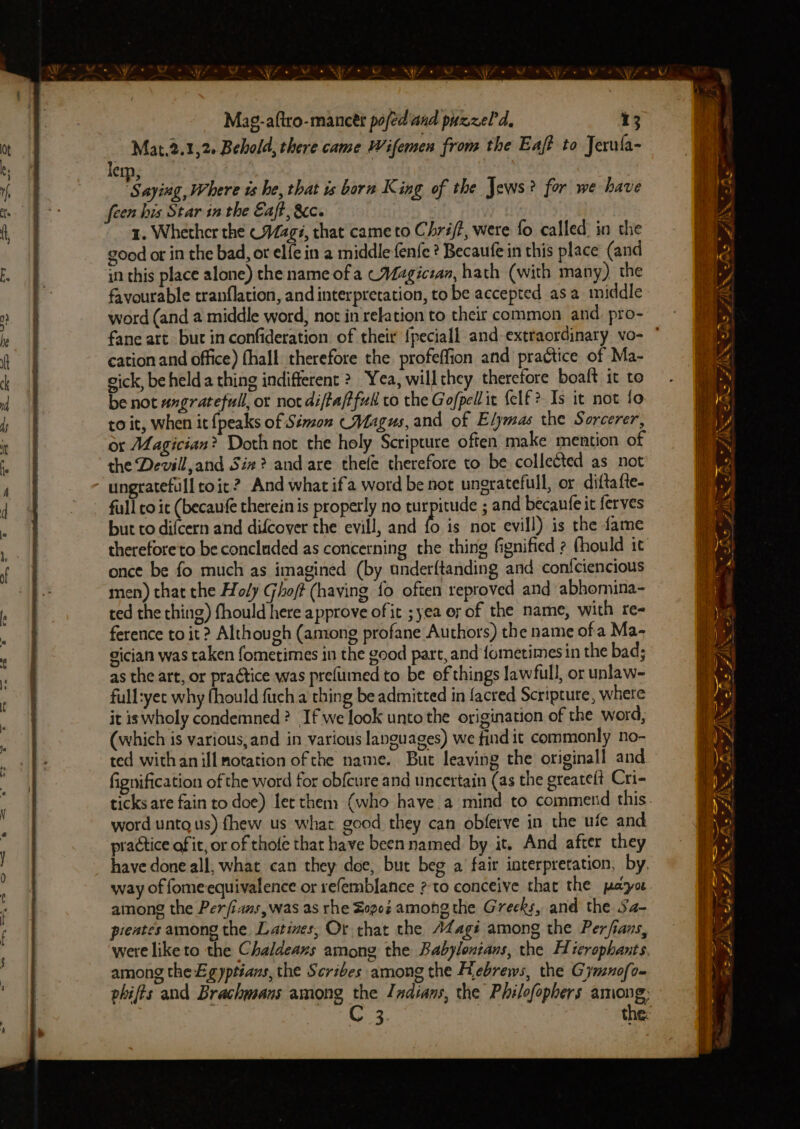 Mag-aſtro-mancer poſed and puzzel'd. 13
Mat.2.1,2. Behold, there came Wiſemen from the Eaſt to Jeruſa-
lem,
Saying, Where is he, that is born King of the Jews? for we have
ſeen his Star in the Eaſt, &c.
1. Whether the Magi, that came to Chriſt, were ſo called in the
good or in the bad, or elſe in a middle ſenſe? Becauſe in this place (and
in this place alone) the name of a Magician, hath (with many) the
favourable tranſlation, and interpretation, to be accepted as a middle
word (and a middle word, not in relation to their common and pro-
fane art but in conſideration of their ſpeciall and extraordinary vo-
cation and office) ſhall therefore the profeſſion and practice of Ma-
gick, be held a thing indifferent? Yea, will they therefore boaſt it to
be not ungratefull, or not diſtaſtfull to the Goſpell it ſelf? Is it not ſo
to it, when it ſpeaks of Simon Magus, and of Elymas the Sorcerer,
or Magician? Doth not the holy Scripture often make mention of
the Devill, and Sin? and are theſe therefore to be collected as not
ungratefull to it? And what if a word be not ungratefull, or diſtaſte-
full to it (becauſe therein is properly no turpitude; and becauſe it ſerves
but to diſcern and diſcover the evill, and ſo is not evill) is the ſame
therefore to be concluded as concerning the thing ſignified? ſhould it
once be ſo much as imagined (by underſtanding and conſciencious
men) that the Holy Ghoſt (having ſo often reproved and abhomina-
ted the thing) ſhould here approve of it; yea or of the name, with re-
ference to it? Although (among profane Authors) the name of a Ma-
gician was taken ſometimes in the good part, and ſometimes in the bad;
as the art, or practice was preſumed to be of things lawfull, or unlaw-
full: yet why ſhould ſuch a thing be admitted in ſacred Scripture, where
it is wholy condemned? If we look unto the origination of the word,
(which is various, and in various languages) we find it commonly no-
ted with an ill notation of the name. But leaving the originall and
ſignification of the word for obſcure and uncertain (as the greateſt Cri-
ticks are fain to doe) let them (who have a mind to commend this
word unto us) ſhew us what good they can obſerve in the uſe and
practice of it, or of thoſe that have been named by it. And after they
have done all, what can they doe, but beg a fair interpretation, by
way of ſome equivalence or reſemblance? to conceive that the μάγοι
among the Perſians, was as the Σοφοὶ among the Greeks, and the Sa-
pientes among the Latines, Or that the Magi among the Perſians,
were like to the Chaldeans among the Babylonians, the Hierophants
among the Egyptians, the Scribes among the Hebrews, the Gymnoſo-
phiſts and Brachmans among the Indians, the Philoſophers among
C 3 the